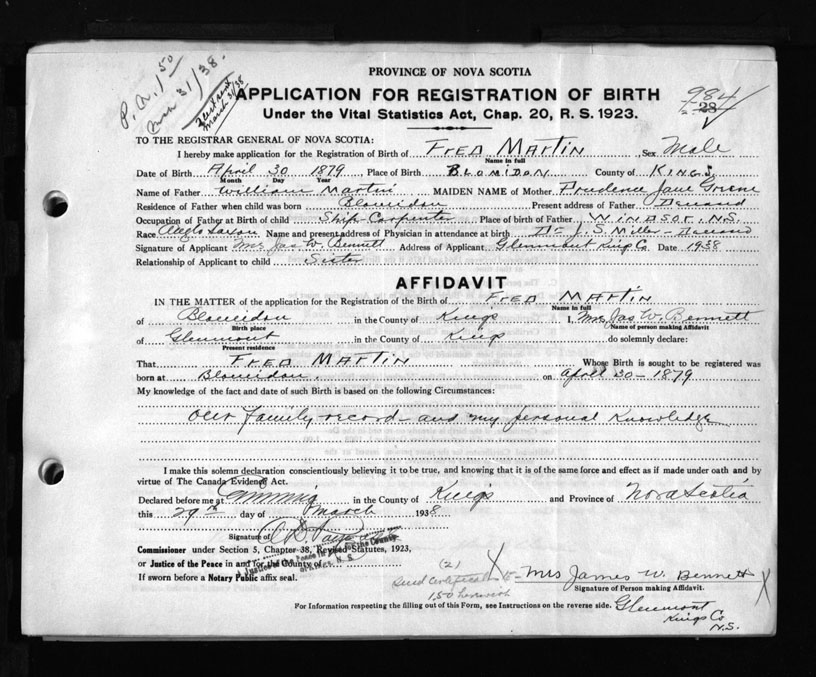 P.A. 1.50
Mar 31/38.
March 31/38
PROVINCE OF NOVA SCOTIA
APPLICATION FOR REGISTRATION OF BIRTH
984
28
Under the Vital Statistics Act, Chap. 20, R. S. 1923.
TO THE REGISTRAR GENERAL OF NOVA SCOTIA:
I hereby make application for the Registration of Birth of FRED MARTIN Sex Male
Name in full
Date of Birth April 30 1879 Place of Birth BLOMIDON County of KINGS
Month Day Year
Name of Father William Martin MAIDEN NAME of Mother Prudence Jane Greene
Residence of Father when child was born Blomidon Present address of Father Deceased
Occupation of Father at Birth of child Ship Carpenter Place of birth of Father WINDSOR, N.S.
Race Anglo Saxon Name and present address of Physician in attendance at birth Dr J. S. Miller – Deceased
Signature of Applicant Mrs Jas W. Bennett Address of Applicant Glenmont Kings Co. Date 1938
Relationship of Applicant to child Sister
AFFIDAVIT
IN THE MATTER of the application for the Registration of the Birth of FRED MARTIN
Name in full
of Blomidon in the County of Kings I, Mrs Jas W. Bennett
Birth place Name of person making Affidavit
of Glenmont in the County of Kings do solemnly declare:
Present residence
That FRED MARTIN Whose Birth is sought to be registered was
born at Blomidon. on April 30 – 1879
My knowledge of the fact and date of such Birth is based on the following Circumstances:
Our Family record – and my personal Knowledge
I make this solemn declaration conscientiously believing it to be true, and knowing that it is of the same force and effect as if made under oath and by
virtue of The Canada Evidence Act.
Declared before me at Canning in the County of Kings and Province of Nova Scotia
this 29th day of March 1938
Signature of
Commissioner under Section 5, Chapter 38, Revised Statutes, 1923,
or Justice of the Peace in and for the County of
A Justice of the Peace in and for the County
of Kings, N. S.
If sworn before a Notary Public affix seal.
(2)
Send Certificate to – Mrs James W. Bennett
1.50 herewith
Signature of Person making Affidavit.
For Information respecting the filling out of this Form, see Instructions on the reverse side.
Glenmont
Kings Co
N.S.